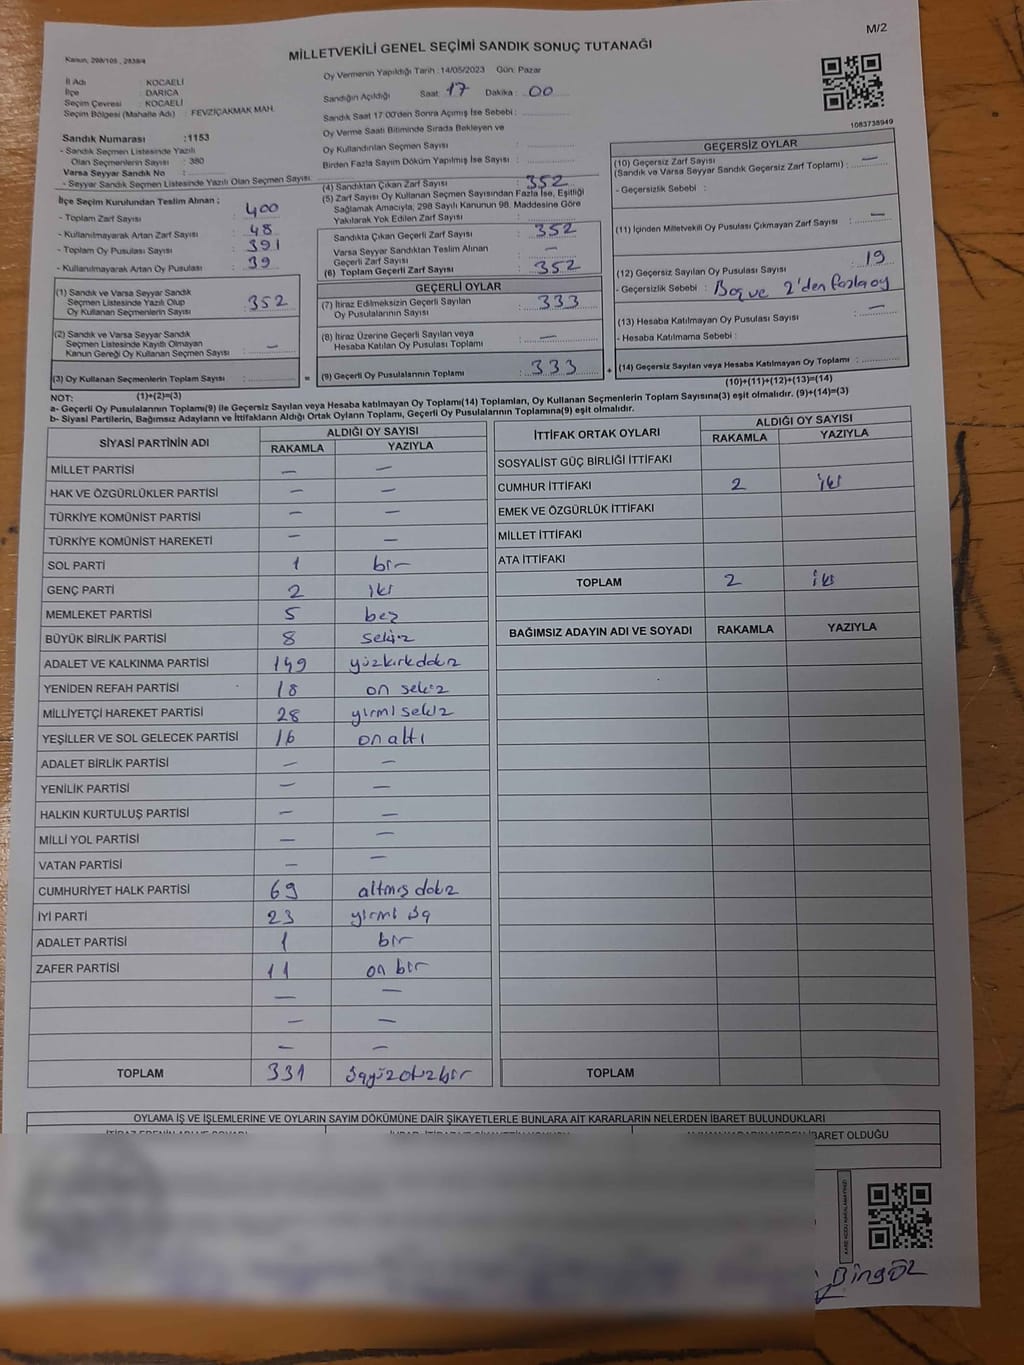 M/2
MİLLETVEKİLİ GENEL SEÇİMİ SANDIK SONUÇ TUTANAĞI
Kanun, 298/105 , 2839/4
İl Adı : KOCAELİ
İlçe : DARICA
Seçim Çevresi : KOCAELİ
Seçim Bölgesi (Mahalle Adı) : FEVZİÇAKMAK MAH.
Sandık Numarası :1153
- Sandık Seçmen Listesinde Yazılı
Olan Seçmenlerin Sayısı : 380
Varsa Seyyar Sandık No :
- Seyyar Sandık Seçmen Listesinde Yazılı Olan Seçmen Sayısı
Oy Vermenin Yapıldığı Tarih :14/05/2023 Gün: Pazar
Sandığın Açıldığı Saat 17 Dakika : 00
Sandık Saat 17:00'den Sonra Açımış İse Sebebi :
Oy Verme Saati Bitiminde Sırada Bekleyen ve
Oy Kullandırılan Seçmen Sayısı :
Birden Fazla Sayım Döküm Yapılmış İse Sayısı :
1083738949
İlçe Seçim Kurulundan Teslim Alınan ;
- Toplam Zarf Sayısı : 400
- Kullanılmayarak Artan Zarf Sayısı : 48
- Toplam Oy Pusulası Sayısı : 391
- Kullanılmayarak Artan Oy Pusulası : 39
(1) Sandık ve Varsa Seyyar Sandık
Seçmen Listesinde Yazılı Olup
Oy Kullanan Seçmenlerin Sayısı : 352
(2) Sandık ve Varsa Seyyar Sandık
Seçmen Listesinde Kayıtlı Olmayan
Kanun Gereği Oy Kullanan Seçmen Sayısı : —
(3) Oy Kullanan Seçmenlerin Toplam Sayısı :
(4) Sandıktan Çıkan Zarf Sayısı : 352
(5) Zarf Sayısı Oy Kullanan Seçmen Sayısından Fazla İse, Eşitliği
Sağlamak Amacıyla, 298 Sayılı Kanunun 98. Maddesine Göre
Yakılarak Yok Edilen Zarf Sayısı :
Sandıkta Çıkan Geçerli Zarf Sayısı : 352
Varsa Seyyar Sandıktan Teslim Alınan
Geçerli Zarf Sayısı : —
(6) Toplam Geçerli Zarf Sayısı : 352
GEÇERLİ OYLAR
(7) İtiraz Edilmeksizin Geçerli Sayılan
Oy Pusulalarının Sayısı : 333
(8) İtiraz Üzerine Geçerli Sayılan veya
Hesaba Katılan Oy Pusulası Toplamı : —
(9) Geçerli Oy Pusulalarının Toplamı : 333
GEÇERSİZ OYLAR
(10) Geçersiz Zarf Sayısı
(Sandık ve Varsa Seyyar Sandık Geçersiz Zarf Toplamı) : —
- Geçersizlik Sebebi :
(11) İçinden Milletvekili Oy Pusulası Çıkmayan Zarf Sayısı : —
(12) Geçersiz Sayılan Oy Pusulası Sayısı : 19
- Geçersizlik Sebebi : Boş ve 2'den fazla oy
(13) Hesaba Katılmayan Oy Pusulası Sayısı : —
- Hesaba Katılmama Sebebi :
(14) Geçersiz Sayılan veya Hesaba Katılmayan Oy Toplamı :
NOT: (1)+(2)=(3) (10)+(11)+(12)+(13)=(14)
a- Geçerli Oy Pusulalarının Toplamı(9) ile Geçersiz Sayılan veya Hesaba katılmayan Oy Toplamı(14) Toplamları, Oy Kullanan Seçmenlerin Toplam Sayısına(3) eşit olmalıdır. (9)+(14)=(3)
b- Siyasi Partilerin, Bağımsız Adayların ve İttifakların Aldığı Ortak Oyların Toplamı, Geçerli Oy Pusulalarının Toplamına(9) eşit olmalıdır.
SİYASİ PARTİNİN ADI ALDIĞI OY SAYISI
RAKAMLA YAZIYLA
MİLLET PARTİSİ — —
HAK VE ÖZGÜRLÜKLER PARTİSİ — —
TÜRKİYE KOMÜNİST PARTİSİ — —
TÜRKİYE KOMÜNİST HAREKETİ — —
SOL PARTİ 1 bir
GENÇ PARTİ 2 iki
MEMLEKET PARTİSİ 5 beş
BÜYÜK BİRLİK PARTİSİ 8 sekiz
ADALET VE KALKINMA PARTİSİ 149 yüzkırkdokuz
YENİDEN REFAH PARTİSİ 18 on sekiz
MİLLİYETÇİ HAREKET PARTİSİ 28 yirmi sekiz
YEŞİLLER VE SOL GELECEK PARTİSİ 16 on altı
ADALET BİRLİK PARTİSİ — —
YENİLİK PARTİSİ — —
HALKIN KURTULUŞ PARTİSİ — —
MİLLİ YOL PARTİSİ — —
VATAN PARTİSİ — —
CUMHURİYET HALK PARTİSİ 69 altmış dokuz
İYİ PARTİ 23 yirmi üç
ADALET PARTİSİ 1 bir
ZAFER PARTİSİ 11 on bir
— —
— —
— —
TOPLAM 331 üçyüzotuzbir
İTTİFAK ORTAK OYLARI ALDIĞI OY SAYISI
RAKAMLA YAZIYLA
SOSYALİST GÜÇ BİRLİĞİ İTTİFAKI
CUMHUR İTTİFAKI 2 iki
EMEK VE ÖZGÜRLÜK İTTİFAKI
MİLLET İTTİFAKI
ATA İTTİFAKI
TOPLAM 2 iki
BAĞIMSIZ ADAYIN ADI VE SOYADI RAKAMLA YAZIYLA
TOPLAM
OYLAMA İŞ VE İŞLEMLERİNE VE OYLARIN SAYIM DÖKÜMÜNE DAİR ŞİKAYETLERLE BUNLARA AİT KARARLARIN NELERDEN İBARET BULUNDUKLARI
İBARET OLDUĞU
KARE KODU KARALAMAYINIZ!
Bingöl